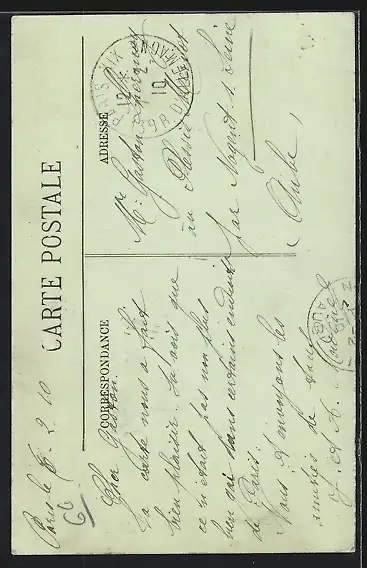 CARTE POSTALE
CORRESPONDANCE
ADRESSE
Paris le 8. 2. 10
60
Cher Gaston.
Ta carte nous a fait
bien plaisir. Tu vois que
ce n'était pas non plus
bien dans certains endroits
de Paris.
Nous t'envoyons les
amitiés de tous
J. et A.
Mr Gaston
au Plessis
par Nogent s. Seine
Aube
PARIS XIX
10
AUBE